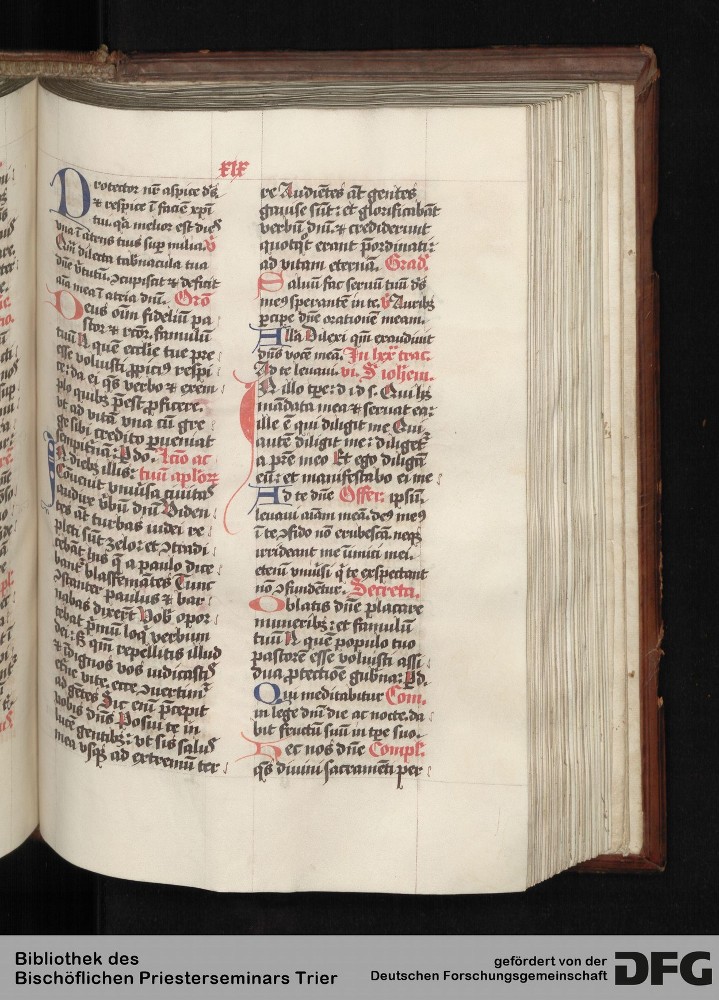 xix
Protector nr̄ aspice ds̄
⁊ respice ī faciē xp̄i
tui. qr̄ melior est dies
vna ī atriis tuis sup milia. v̄
Qm̄ dilecta tab̄nacula tua
dn̄e v̓tutū. ↄcupiscit ⁊ deficit
aīa mea ī atria dn̄i. Oro᷒
Deus oīm fidelium pa
stor ⁊ rcōr. famulū
tuū N quē eccl̄ie tue pre
esse voluisti ꝓpiciꝰ respi
ce: da ei qs̄ verbo ⁊ exem
plo quibꝫ p̄est ꝓficere.
vt ad vitā vna cū gre
ge sibi credito ꝑueniat
sempit̓nā: P do. Actuū ac
In diebꝫ illis: tuū apl̓oꝝ
Conuēit vniūsa ciuitas
audire v̓bū dn̄i Viden
tes āt turbas iudei re
pleti sūt zelo: et ↄtradi
cebāt his q̄ a paulo dice
bant᷒ blasfemātes Tunc
ↄstanter paulus ⁊ bar
nabas dixert̄ Vob᷒ opor
tebat p̄mū loq̄ verbum
dei: S; qm̄ repellitis illud
⁊ īdignos vos iudicastis
et̓ne vite. ecce ↄuertim᷒
ad gētes Sic enī p̄cepit
nobis dn̄s Posui te in
lucē gentibꝫ: vt sis salus
mea vsqꝫ ad extremū ter
re Audiētes āt gentes
gauise sūt: et glorificabāt
verbū dn̄i. ⁊ crediderunt
quotq̄t erant p̄ordinati:
ad vitam eternā. Grad᷒.
Saluū fac seruū tuū ds̄
meꝰ sperantē in te. v̄ Auribꝫ
ꝑcipe dn̄e orationē meam.
Alla Dilexi qm̄ exaudiuit
dn̄s vocē meā. In lxx͛ trac.
Ad te leuaui. vi. S ioh̄em.
In illo tp̄e: d i d s. Qui hꝫ
mādata mea ⁊ seruat ea:
ille ē qui diligit me Qui
autē diligit me: diliget᷒
a pr̄e meo Et ego diligā
eū: et manifestabo ei me
Ad te dn̄e Offer. ipsū.
leuaui aīam meā. deꝰ meꝰ
ī te ↄfido nō erubescā. neqꝫ
irrideant me inimici mei.
etenī vniūsi q̓ te exspectant
nō ↄfundētur. Secreta.
Oblatis dn̄e placare
muneribꝫ: et famulū
tuū N quē populo tuo
pastorē esse voluisti assi
dua ꝓtectiōe gub̓na: P d.
Qui meditabitur Com.
in lege dn̄i die ac nocte. da
bit fructū suū in tp̄e suo.
Hec nos dn̄e Compl᷒.
qs̄ diuini sacramēti per
Bibliothek des
Bischöflichen Priesterseminars Trier
gefördert von der
Deutschen Forschungsgemeinschaft
DFG